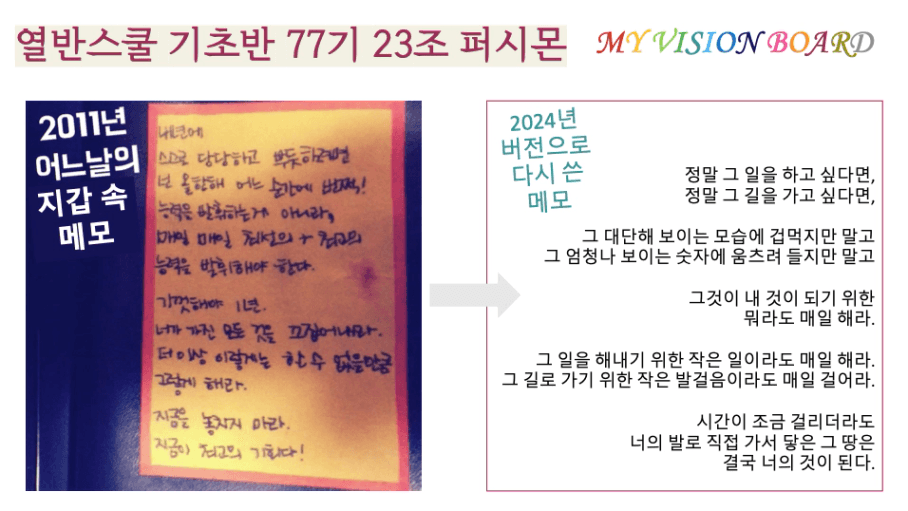 열반스쿨 기초반 77기 23조 퍼시몬
MY VISION BOARD
2011년
어느날의
지갑 속
메모
내년에
스스로 당당하고 뿌듯하려면
넌 올한해 어느 순간에 번쩍!
능력을 발휘하는게 아니라,
매일 매일 최선의 + 최고의
능력을 발휘해야 한다.
기껏해야 1년.
네가 가진 모든 것을 끄집어내라.
더이상 이렇게는 할 수 없을만큼
그렇게 해라.
지금을 놓치지 마라.
지금이 최고의 기회다!
2024년
버전으로
다시 쓴
메모
정말 그 일을 하고 싶다면,
정말 그 길을 가고 싶다면,
그 대단해 보이는 모습에 겁먹지만 말고
그 엄청나 보이는 숫자에 움츠려 들지만 말고
그것이 내 것이 되기 위한
뭐라도 매일 해라.
그 일을 해내기 위한 작은 일이라도 매일 해라.
그 길로 가기 위한 작은 발걸음이라도 매일 걸어라.
시간이 조금 걸리더라도
너의 발로 직접 가서 닿은 그 땅은
결국 너의 것이 된다.